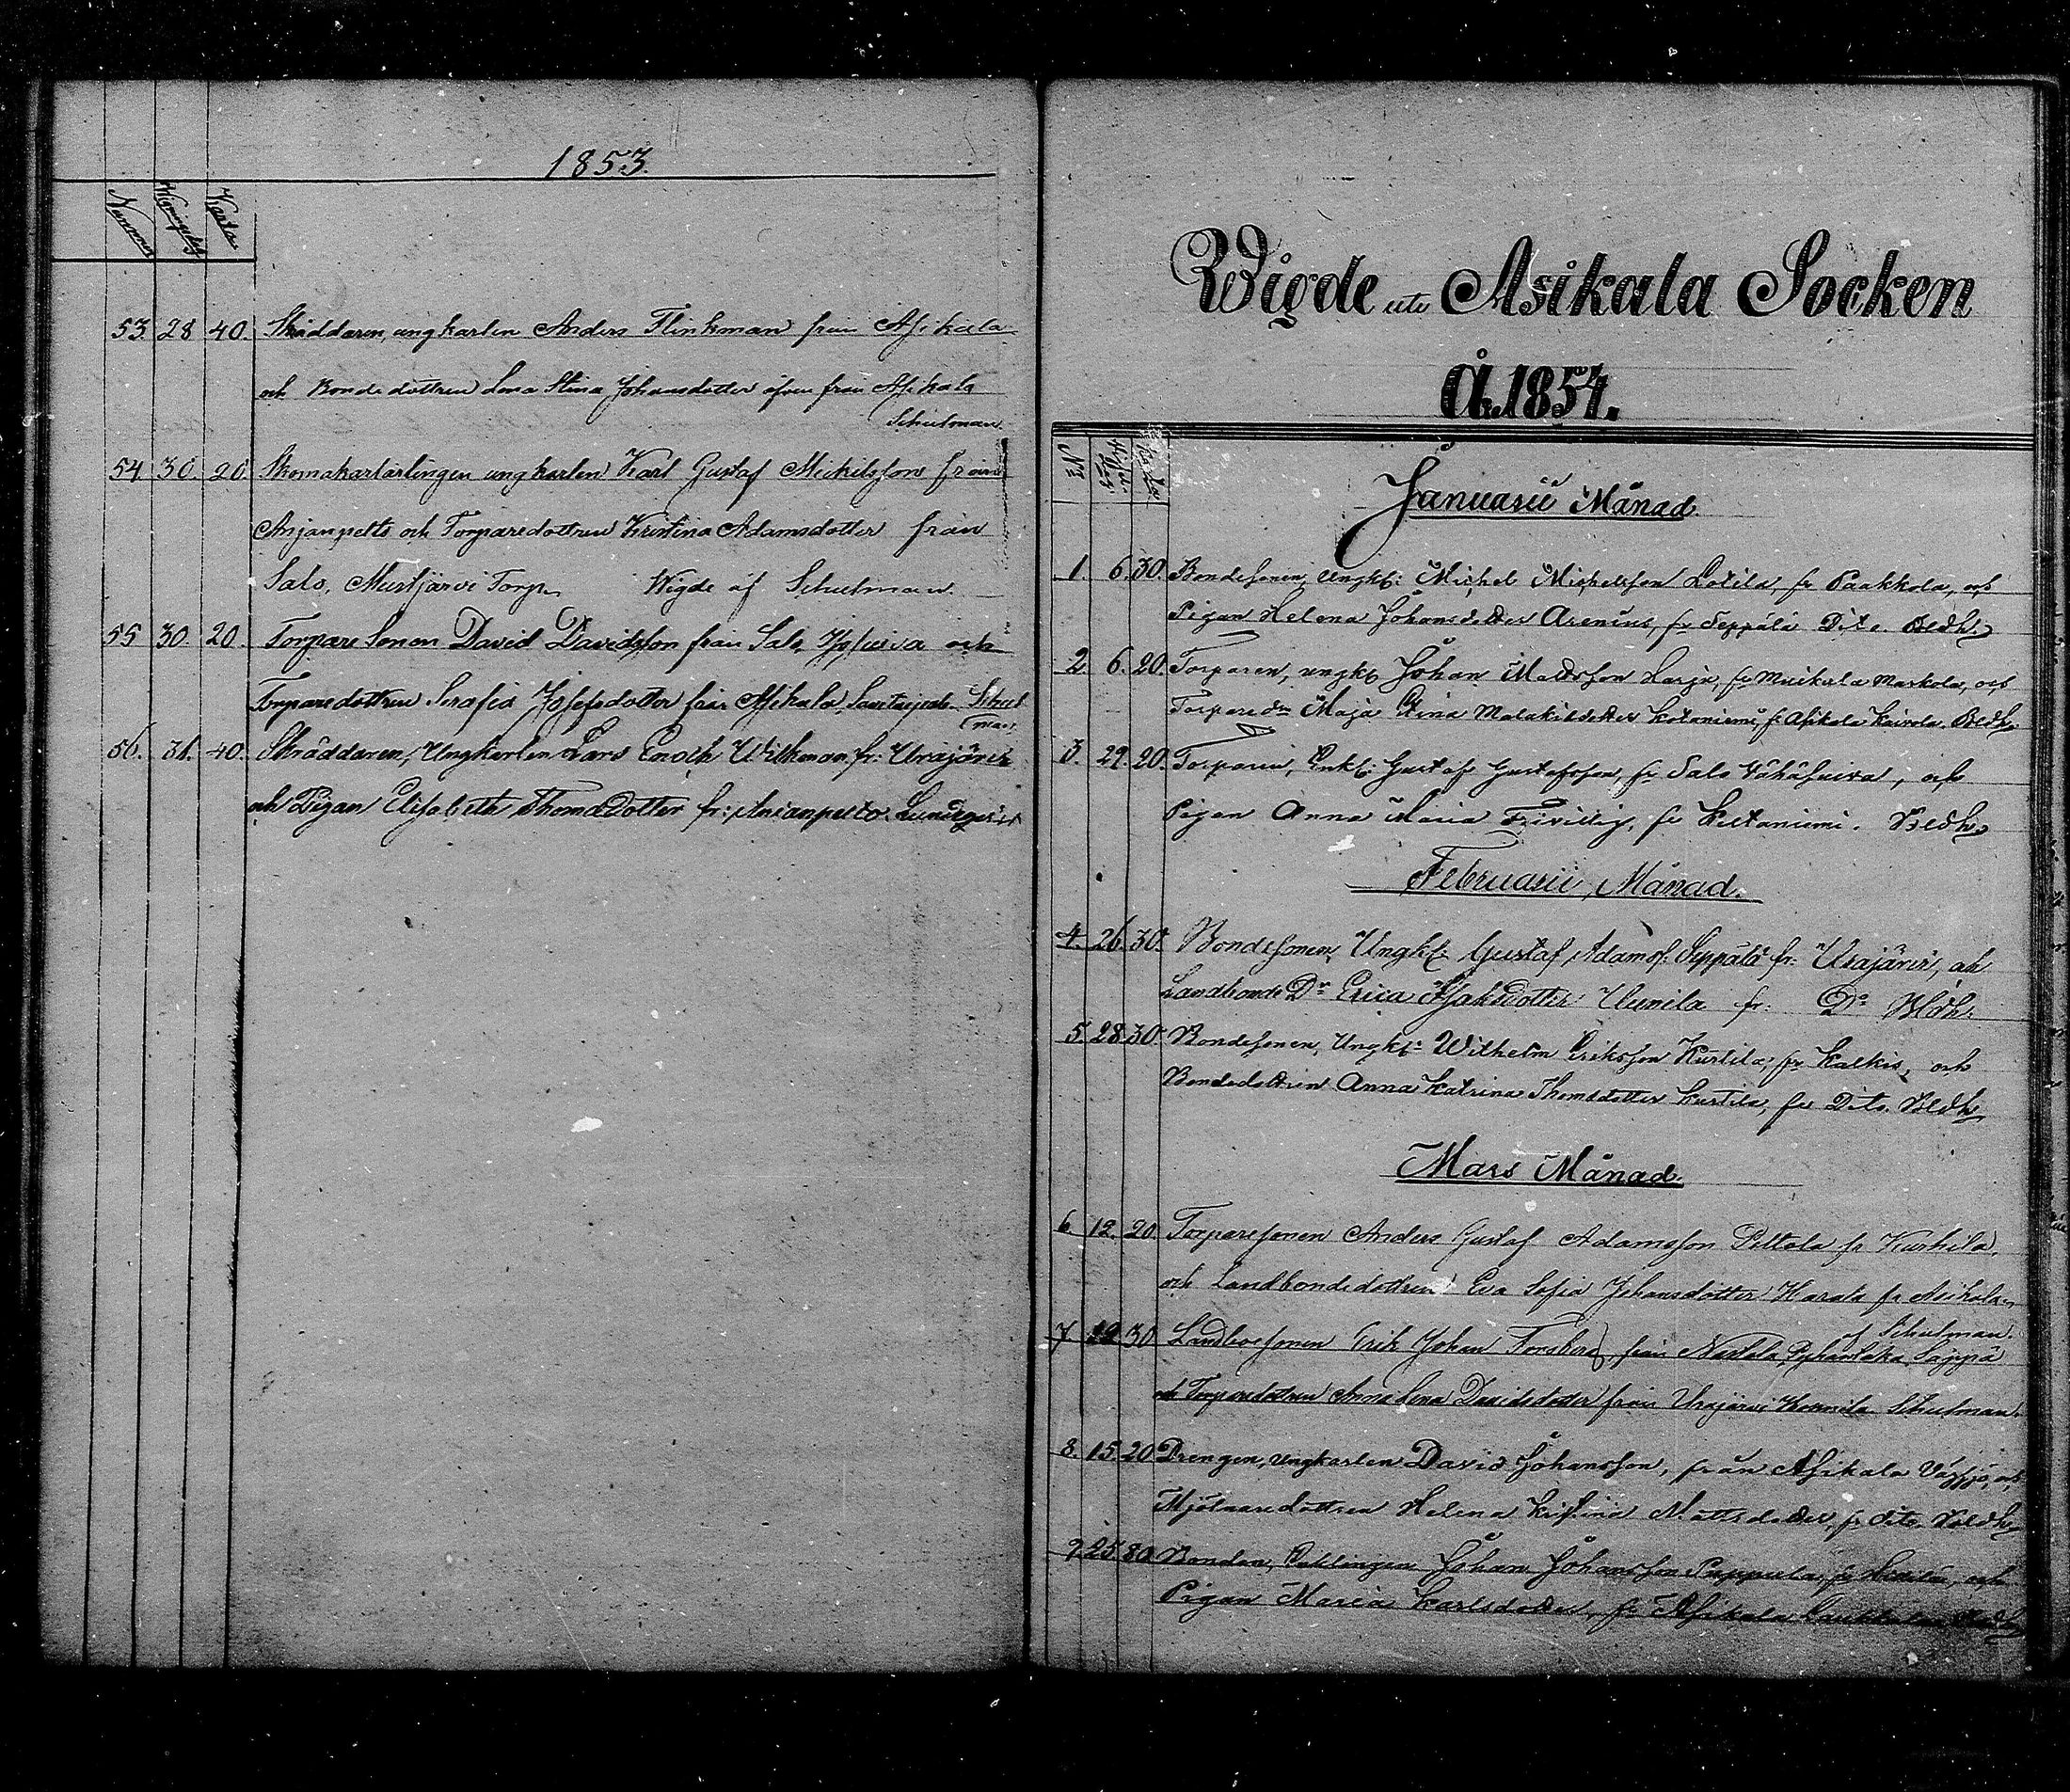 1853.
Nummer Wigningsdag Kassa
53. 28 40. Skräddaren, ungkarlen Anders Flinkman från Asikala
och Bondedottren Lena Stina Johansdotter äfven från Asikala
Schulman.
54. 30. 20. Skomakarlärlingen ungkarlen Karl Gustaf Michelsson från
Anjanpelto och Torparedottren Kristina Adamsdotter från
Salo, Mustjärvi Torp. Wigde af Schulman.
55 30. 20. Torpare Sonen David Davidsson från Salo, och
Torparedottren Serafia Josefsdotter från Asikala, Schul
man.
56. 31. 40. Skräddaren, Ungkarlen Lars Enoch Wilkman fr: Urajärvi
och Pigan Elisabeth Thomædotter fr: Anianpelto.
Wigde uti Asikala Socken
År 1854.
No Kassa
Januarii Månad.
1. 6. 30. Bondesonen, Ungk: Michel Michelsson Lotila, fr Paakkola, och
Pigan Helena Johansdotter Arenius, fr Seppälä Dito.
2. 6. 20. Torparen, ungk: Johan Mattsson Harju, fr och
Maja Stina Malakisdotter Kotoniemi, fr Asikala
3. 29. 20. Torparen, Enkl: Gustaf Gustafsson, fr Salo Vähäsuiva, och
Pigan Anna Maria Frivillig, fr Keltaniemi.
Februarii, Månad.
4. 26. 30. Bondesonen, Ungk: Gustaf Adamsf. Seppälä fr: Urajärvi, och
Landbonde Dr Erica Isaksdotter Uunila fr: Do
5. 28. 30. Bondesonen, Ungk: Wilhelm Eriksson Kurtila, fr Kalkis, och
Bondedottren Anna Katrina Thomsdotter Kurtila, fr Dito.
Mars Månad.
6 12. 20. Torparesonen Anders Gustaf Adamsson Pettola fr Kurhila,
och Landbondedottren Eva Sofia Johansdotter Harala fr Asikala,
Schulman.
7 12 30 Landboesonen Erik Johan Forsberg från Nastola
och Torparedottren Anna Lena Davidsdotter från Urajärvi Schulman.
8. 15. 20 Drengen, ungkarlen David Johansson, från Asikala och
Mjölnaredottren Helena Kristina Mattsdotter, fr dito.
9. 25. 80. Bonden, Johan Johansson och
Pigan Maria Karlsdotter, fr Asikala